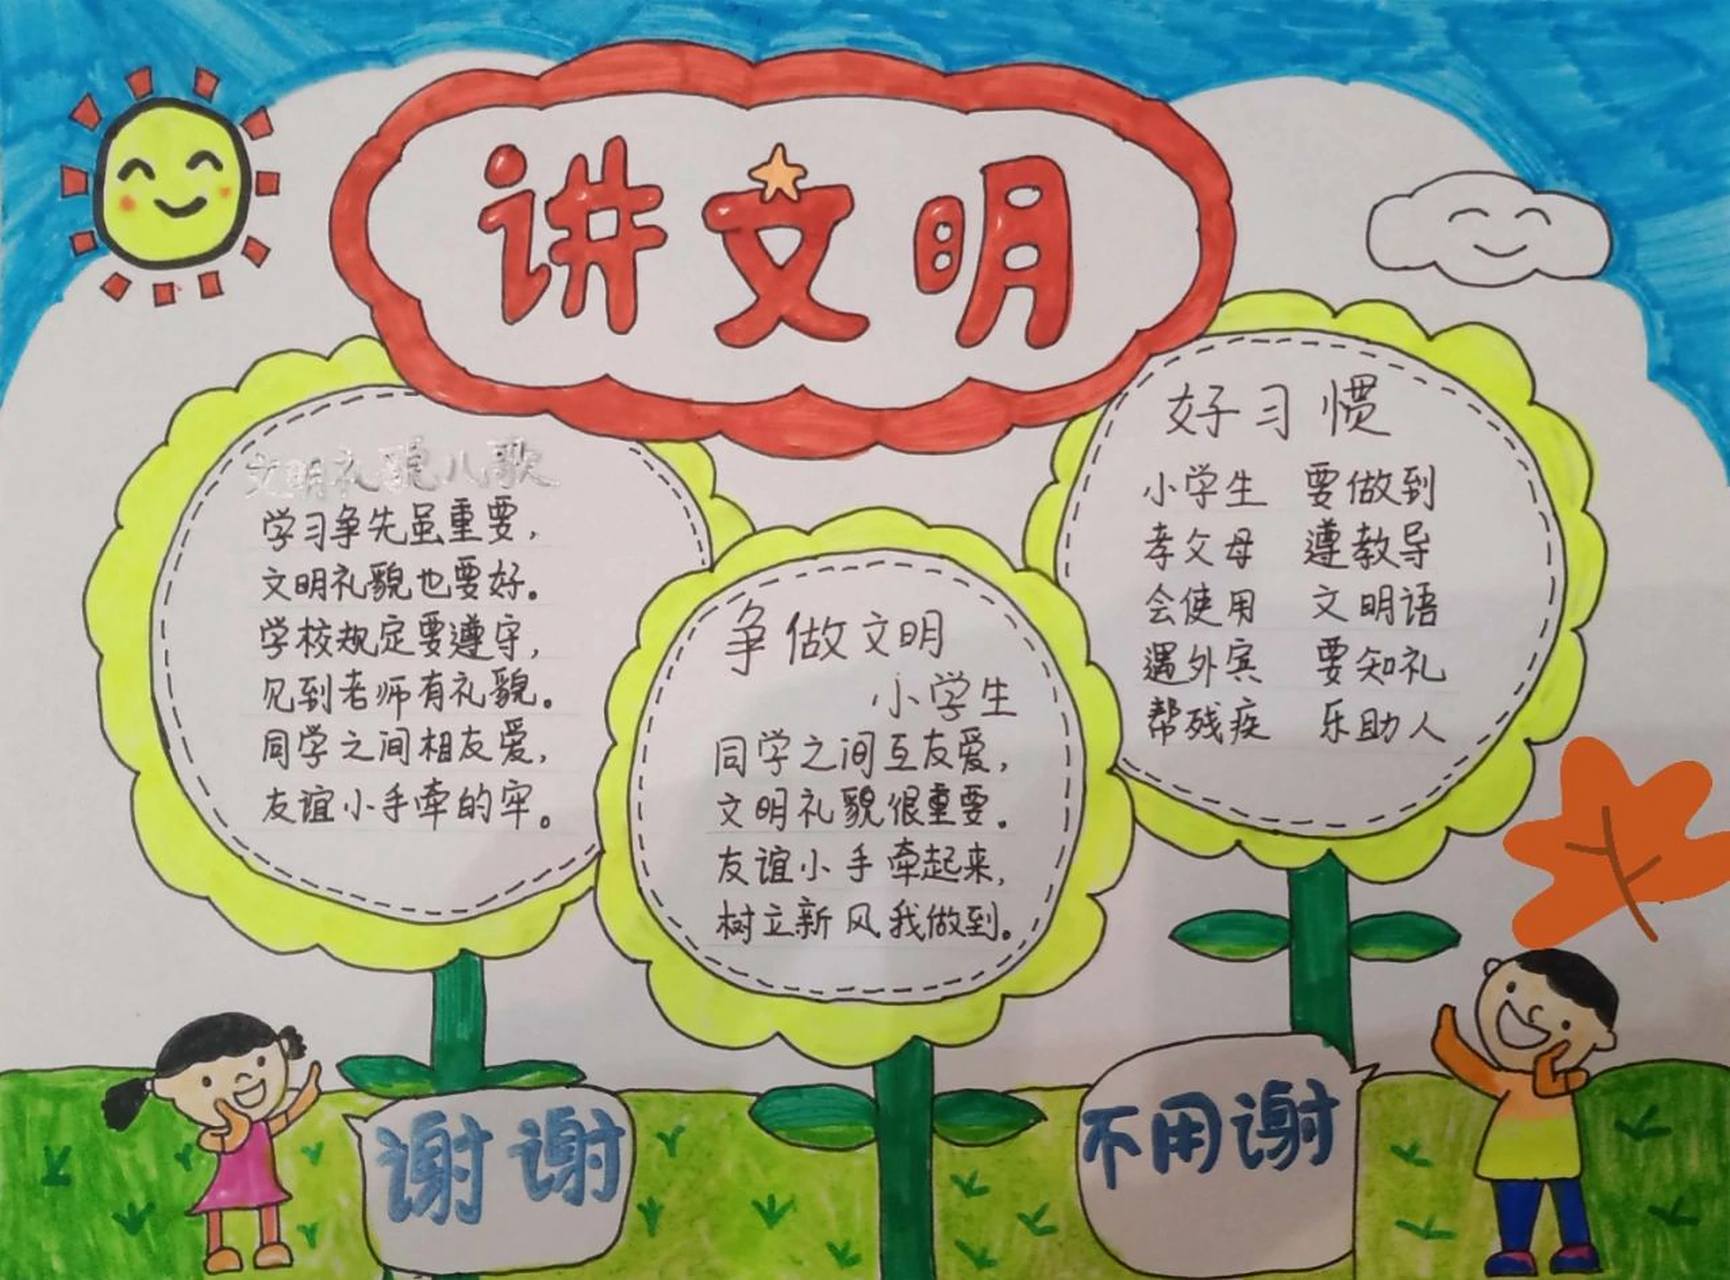 讲文明
文明礼貌儿歌
学习争先虽重要，
文明礼貌也要好。
学校规定要遵守，
见到老师有礼貌。
同学之间相友爱，
友谊小手牵的牢。
争做文明
小学生
同学之间互友爱，
文明礼貌很重要。
友谊小手牵起来，
树立新风我做到。
好习惯
小学生 要做到
孝父母 遵教导
会使用 文明语
遇外宾 要知礼
帮残疾 乐助人
谢谢
不用谢